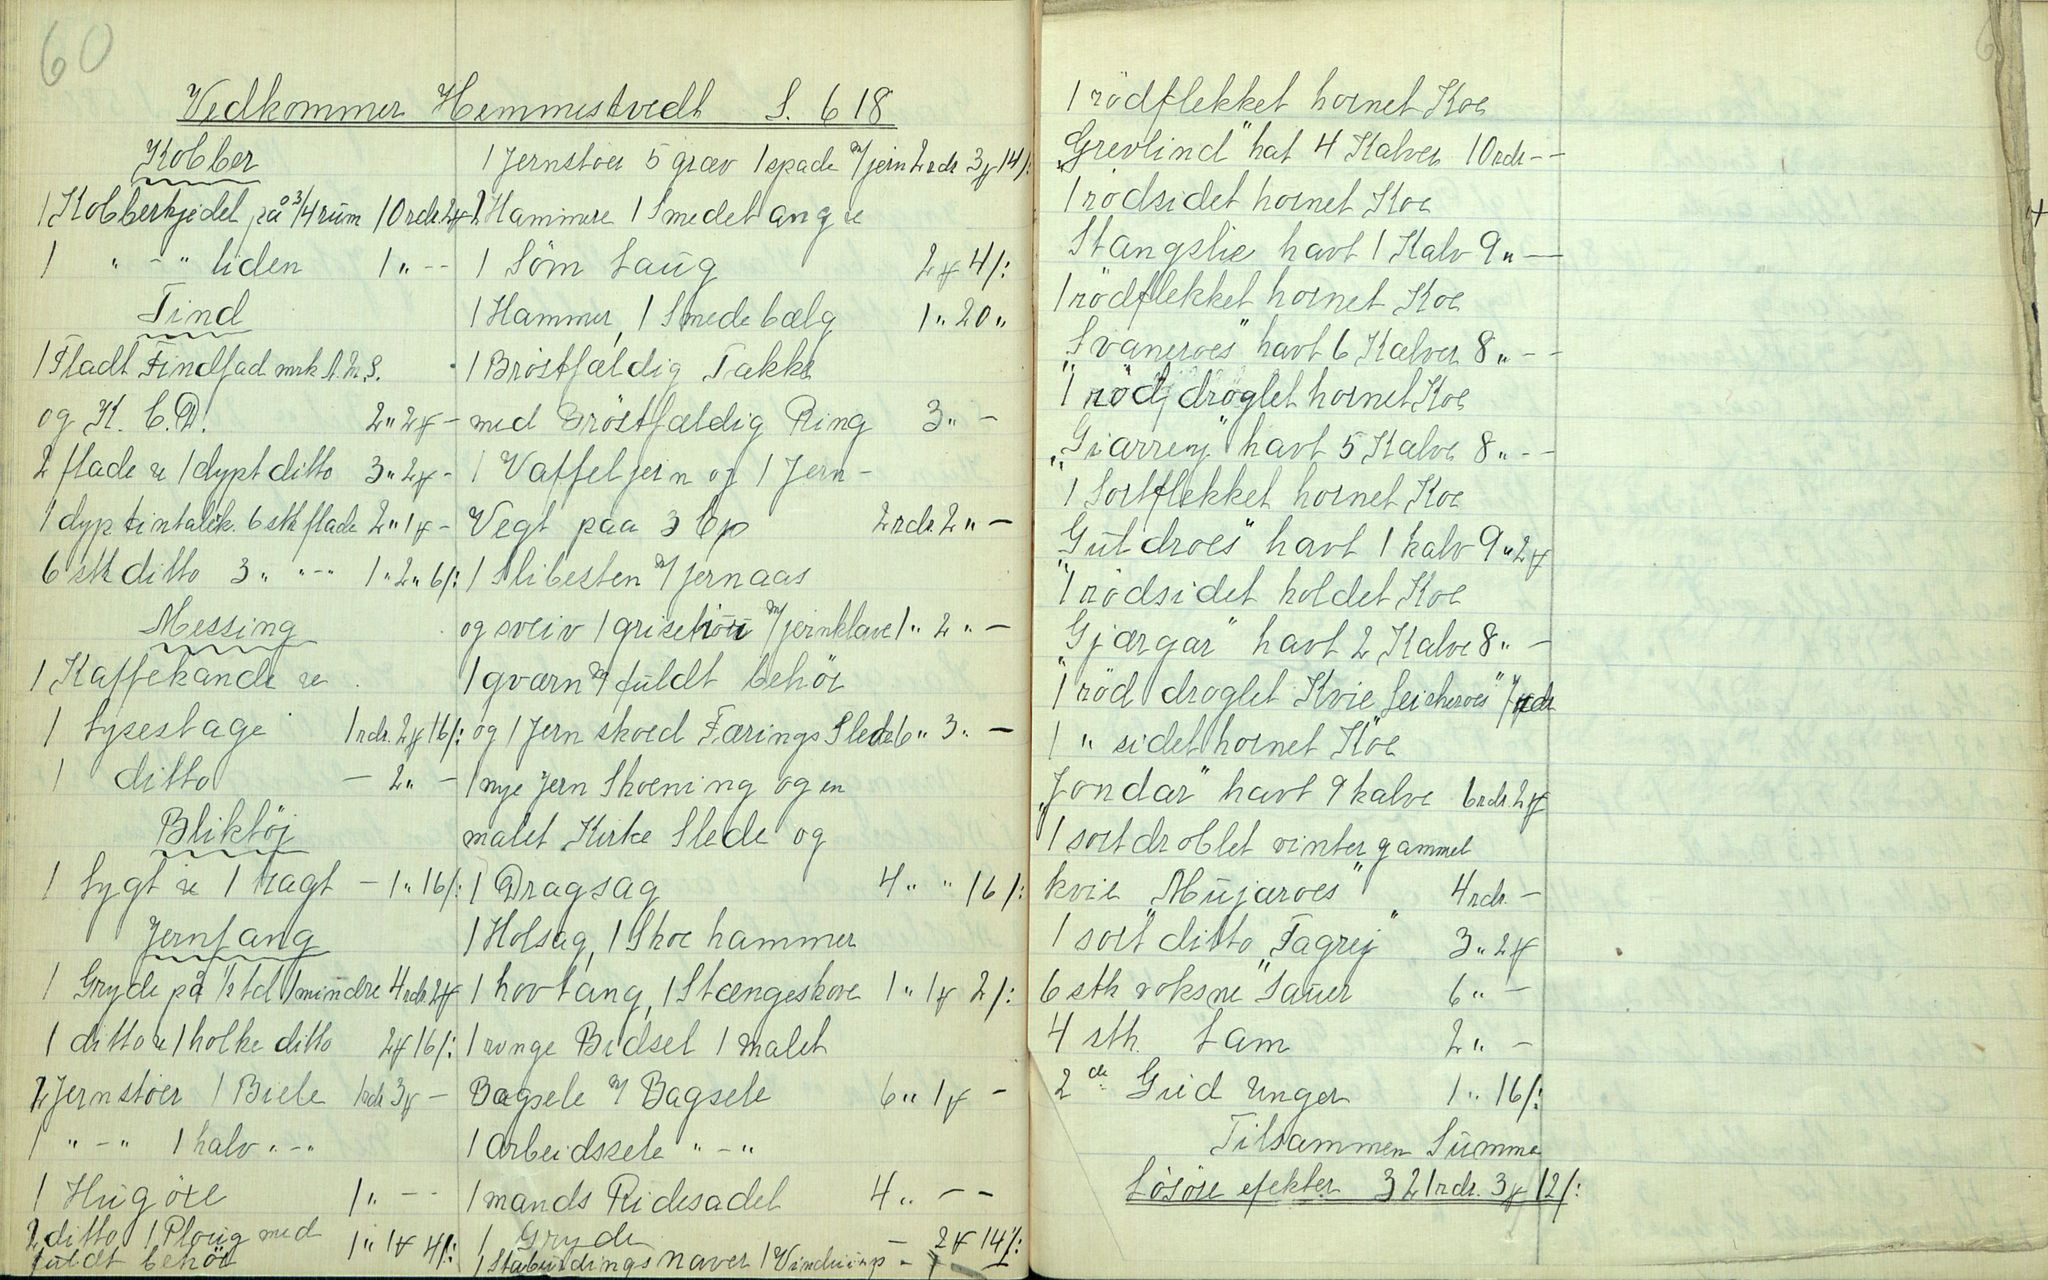 60
Vedkommer Hemmestvedt S. 618
Kobber
1 Kobberkjedel på 3/4 rum 10 rdr 2 #
1 " - " liden 1 " - -
Tind
1 Fladt Tindfad mrk
og K. C. D. 2 " 2 # -
2 flade u 1 dypt ditto 3 " 2 # -
1 dyp tintalik. 6 stk flade 2 " 1 # -
6 stk ditto 3 " " - - 1 " 2 " 6 /:
Messing
1 Kaffekande u
1 Lysestage 1 rdr. 2 # 16 /:
1 ditto - 2 " -
Bliktøj
1 Lygt u 1 tragt - 1 " 16 /:
Jernfang
1 Gryde på 1/2 td 1 mindre 4 rdr. 2 #
1 ditto u 1 holke ditto 2 # 16 /:
2 Jernstöer 1 Biele 1 rdr 3 # -
1 " - " 1 halv " - "
1 Hugöxe 1 " - -
2 ditto 1 Ploug med
fuldt behör 1 " 1 # 4 /:
1 Jernstöer 5 græv 1 spade m/ jern 2 rdr. 3 # 14 /:
2 Hammere 1 Smedetang u
1 Söm Laug 2 # 4 /:
1 Hammer, 1 Smedebælg 1 " 20 "
1 Bröstfældig Takke
med Bröstfældig Ring 3 " -
1 Vaffeljern og 1 Jern -
Vegt paa 3 Bp 2 rdr. 2 " -
1 Slibesten m/ jernaas
og sveiv 1 m/ jernklave 1 " 2 " -
1 gværn m/ fuldt behör
og 1 Jern skoed Færings Slede 6 " 3 " -
1 nye Jern Skoening og en
malet Kirke Slede og
1 Dragsag 4 " " 16 /:
1 Holsag, 1 Skoe hammer
1 hovtang, 1 Stængeskove 1 " 1 # 2 /:
1 runge Bidsel 1 malet
Bogsele m/ Bagsele 6 " 1 # -
1 Arbeidssele " - "
1 mands Ridesadel 4 " - -
1 Gryde - 2 # 14 /:
1 Staburdings naver 1
1 rödflekket hornet Koe
"Grevlind" hat 4 Kalver 10 rdr - -
1 rödsidet hornet Koe
Stangslie havt 1 Kalv 9 " -
1 rödflekket hornet Koe
"Svaneroes" havt 6 Kalver 8 " - -
1 röd, dröglet hornet Koe
"Giarrey" havt 5 Kalve 8 " - -
1 Sortflekket hornet Koe
"Guldroes" havt 1 kalv 9 " 2 #
1 rödsidet koldet Koe
"Gjærgar" havt 2 Kalve 8 " -
1 röd droglet Kvie Leikeroes" 7 rdr
1 " sidet hornet Koe
"Jondar" havt 9 kalve 6 rdr. 2 #
1 sort droblet vinter gammel
kvie "Mujaroes" 4 rdr. -
1 sort ditto "Fagrej" 3 " 2 #
6 stk voksne Sauer 6 " -
4 stk. Lam 2 " -
2 de Gied Unger 1 " 16 /:
Tilsammen Summa
Lösöre efekter 321 rdr. 3 # 12 /: